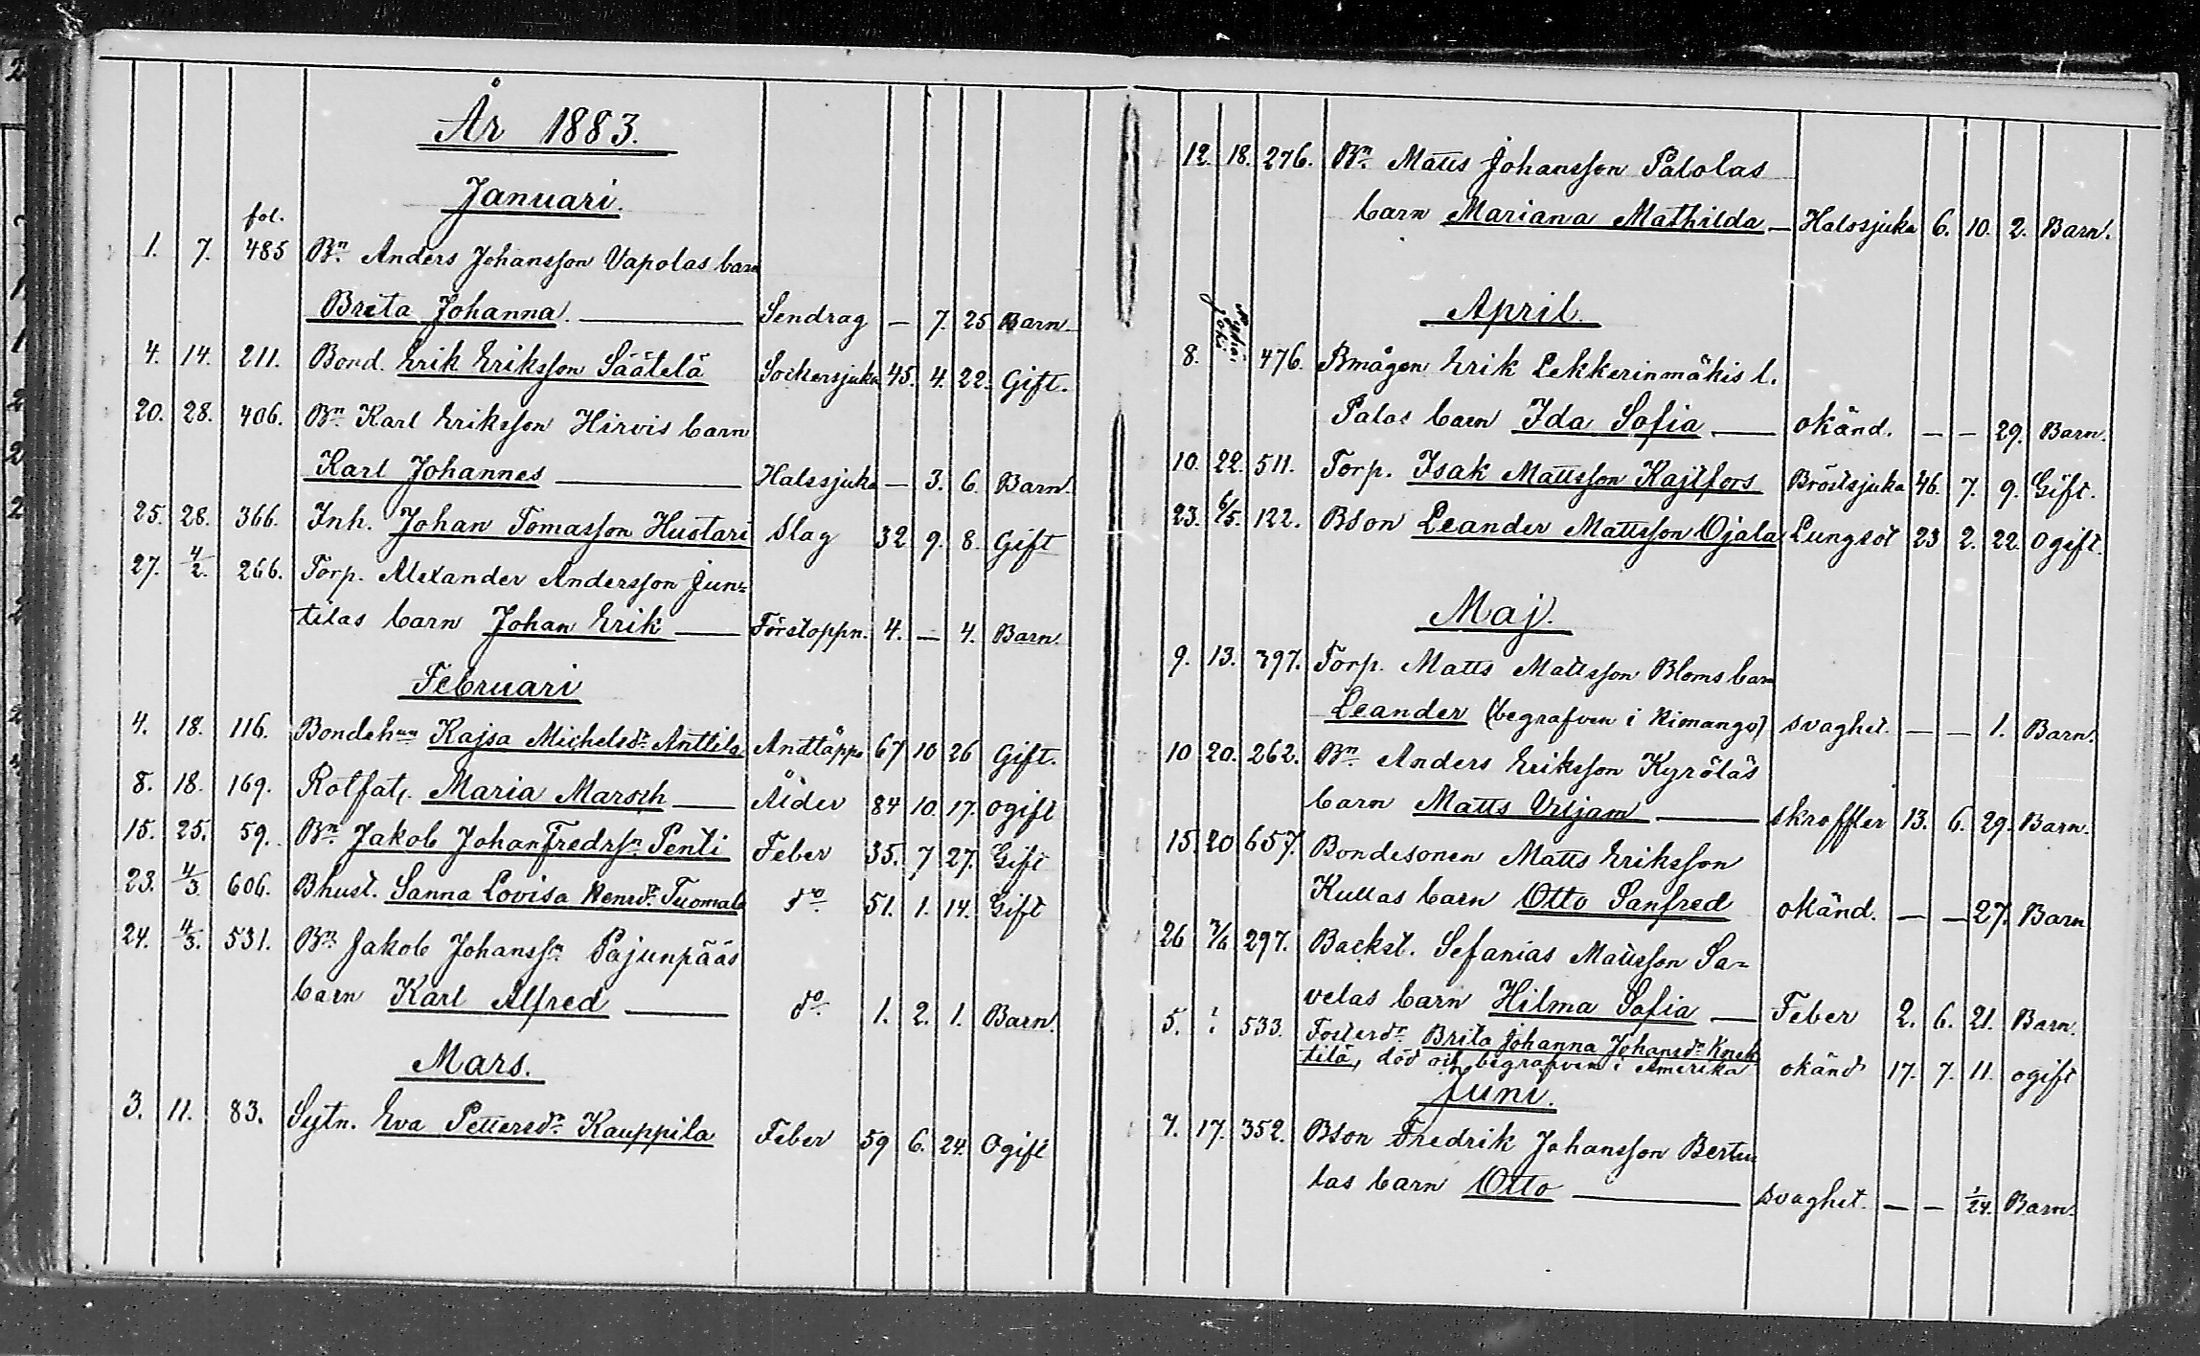 År 1883.
Januari.
fol.
1. 7. 485 Bn. Anders Johansson Vapolas barn
Brita Johanna. — Sendrag — 7. 25 Barn.
4. 14. 211. Bond. Erik Eriksson Säätelä Sockersjuka 45. 4. 22. Gift.
20. 28. 406. Bn. Karl Eriksson Hirvis barn
Karl Johannes — Halssjuka — 3. 6. Barn.
25. 28. 366. Inh. Johan Tomasson Hustari Slag 32 9. 8. Gift
27. 4/2. 266. Torp. Alexander Andersson Jun=
tilas barn Johan Erik — Förstoppn. 4. — 4. Barn.
Februari
4. 18. 116. Bondehun Kajsa Michelsdr. Anttila Andtäppa 67 10 26 Gift.
8. 18. 169. Rotfatt. Maria Marsch — Ålder 84 10. 17. ogift
15. 25. 59. Bn. Jakob Johan Fredrsn. Penti Feber 35. 7 27. Gift
23. 4/3 606. Bhust. Sanna Lovisa Henrdr. Tuomala do. 51. 1. 14. Gift
24. 4/3. 531. Bn. Jakob Johanssn. Pajunpääs
barn Karl Alfred — do. 1. 2. 1. Barn.
Mars.
3. 11. 83. Sytn. Eva Pettersdr. Kauppila Feber 59 6. 24. Ogift
12. 18. 276. Bn. Matts Johansson Palolas
barn Mariana Mathilda — Halssjuka 6. 10. 2. Barn.
April.
8. Pyhäjoki 476. Bmågen Erik Lekkerinmäkis l.
Palos barn Ida Sofia — okänd. — — 29. Barn.
10. 22. 511. Torp. Isak Mattsson Kajtfors Bröstsjuka 46. 7. 9. Gift.
23. 6/5. 122. Bson Leander Mattsson Ojala Lungsot 23 2. 22. Ogift.
Maj.
9. 13. 397. Torp. Matts Mattsson Bloms barn
Leander (begrafven i Himango) svaghet. — — 1. Barn.
10 20. 262. Bn. Anders Eriksson Kyröläs
barn Matts Viljam — skroffler 13. 6. 29. Barn.
15. 20 657. Bondesonen Matts Eriksson
Kullas barn Otto Sanfred okänd. — — 27. Barn
26 3/6 297. Backst. Sefanias Mattsson Sa=
velas barn Hilma Sofia — Feber 2. 6. 21. Barn.
5. ? 533. Fosterdr. Brita Johanna Johansdr. Knek
tilä, död och begrafven i Amerika okänd 17. 7. 11. ogift
Juni.
7. 17. 352. Bson Fredrik Johansson Bertu
las barn Otto — svaghet. — — 1/24. Barn.